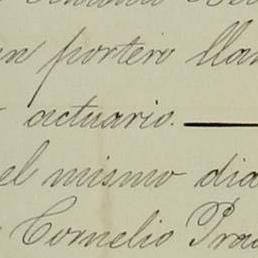 un portero llam
actuario.
el mismo dia
Cornelio Prad